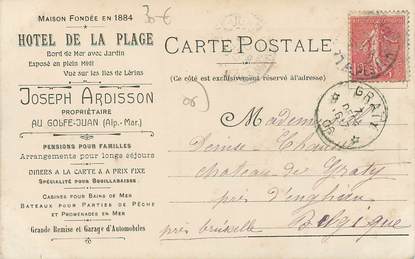 MAISON FONDÉE EN 1884
HOTEL DE LA PLAGE
Bord de Mer avec Jardin
Exposé en plein Midi
Vue sur les Iles de Lérins
JOSEPH ARDISSON
PROPRIÉTAIRE
AU GOLFE-JUAN (Alp.-Mar.)
PENSIONS POUR FAMILLES
Arrangements pour longs séjours
DINERS A LA CARTE & A PRIX FIXE
SPÉCIALITÉ POUR BOUILLABAISSE
CABINES POUR BAINS DE MER
BATEAUX POUR PARTIES DE PÊCHE
ET PROMENADES EN MER
Grande Remise et Garage d'Automobiles
CARTE POSTALE
(Ce côté est exclusivement réservé à l'adresse)
06
GRATY
Mademoiselle
Denise
chateau de Graty
près d'enghien
près bruxelle Belgique